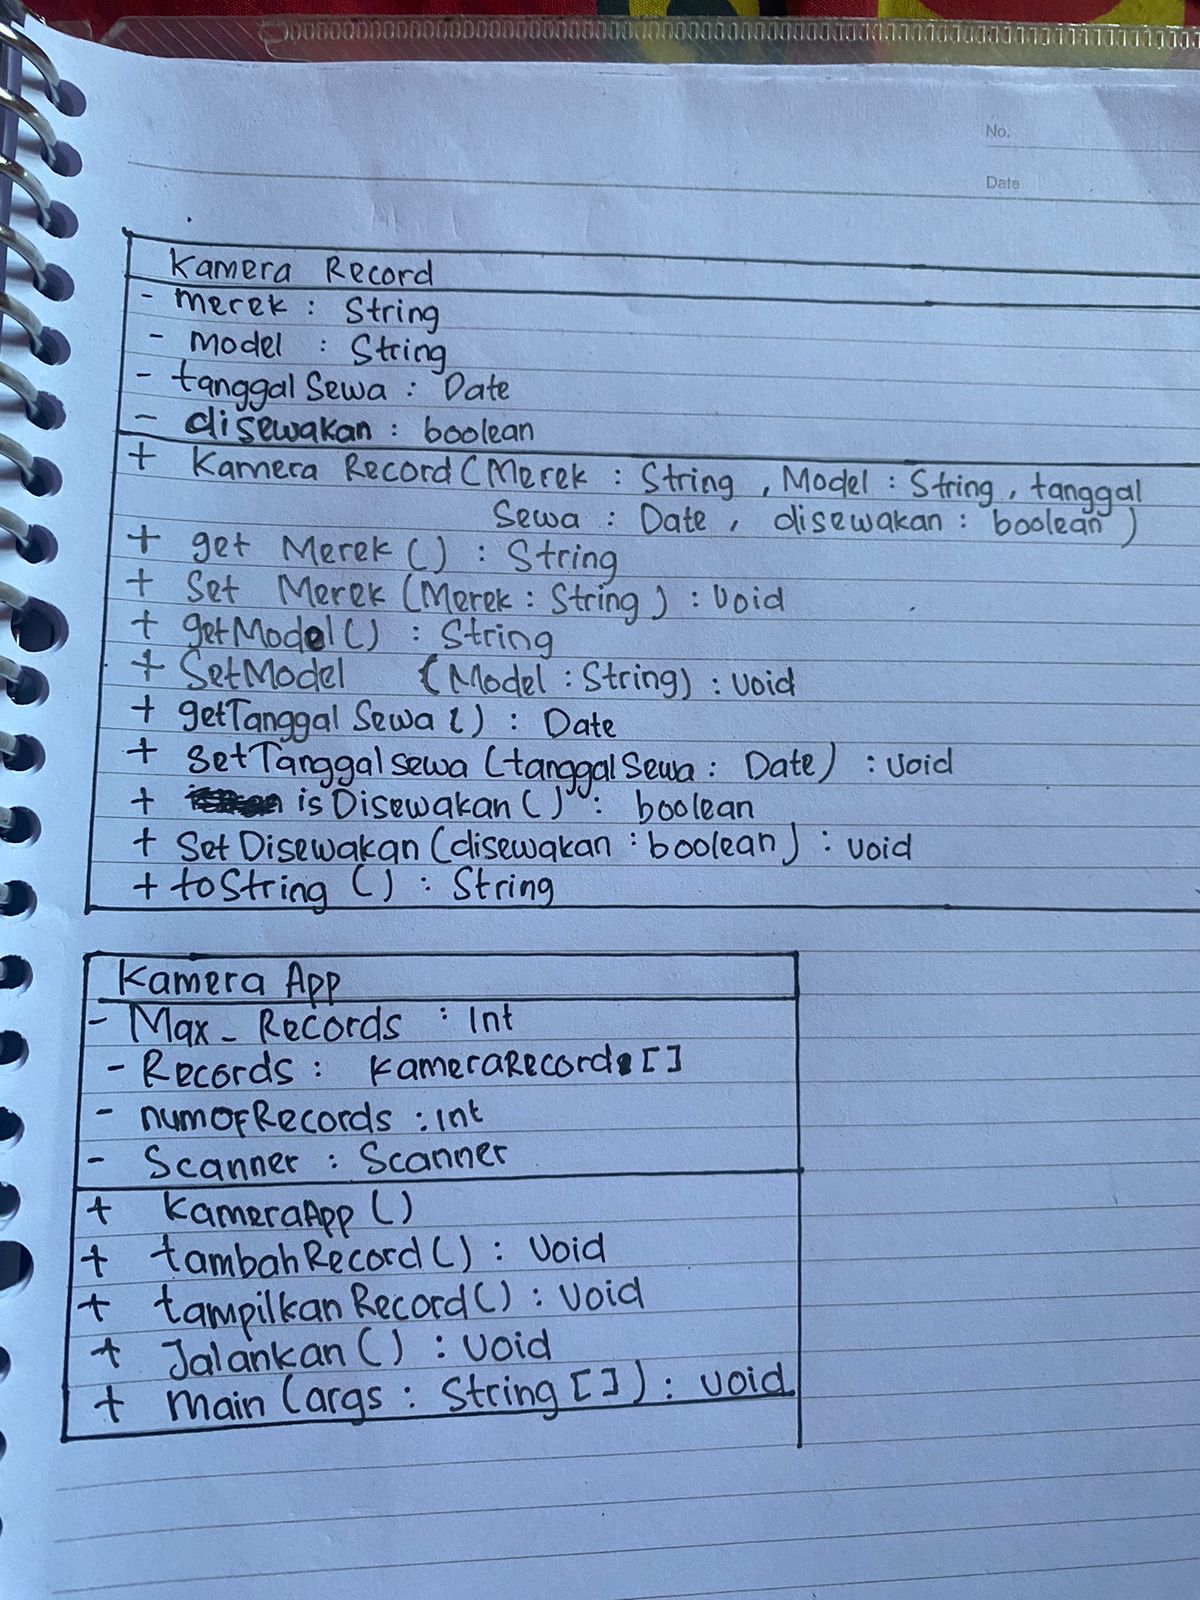 No.
Date
Kamera Record
- merek : String
- model : String
- tanggal Sewa : Date
- disewakan : boolean
+ Kamera Record (Merek : String , Model : String, tanggal
Sewa : Date , disewakan : boolean )
+ get Merek () : String
+ Set Merek (Merek : String) : void
+ getModel () : String
+ SetModel (Model : String) : void
+ getTanggal Sewa () : Date
+ SetTanggalsewa (tanggal Sewa : Date) : void
+ is Disewakan () : boolean
+ Set Disewakan (disewakan : boolean) : void
+ toString () : String
Kamera App
- Max_Records : Int
- Records : KameraRecord []
- numOfRecords : Int
- Scanner : Scanner
+ KameraApp ()
+ tambahRecord () : Void
+ tampilkan Record () : Void
+ Jalankan () : Void
+ main (args : String []) : void